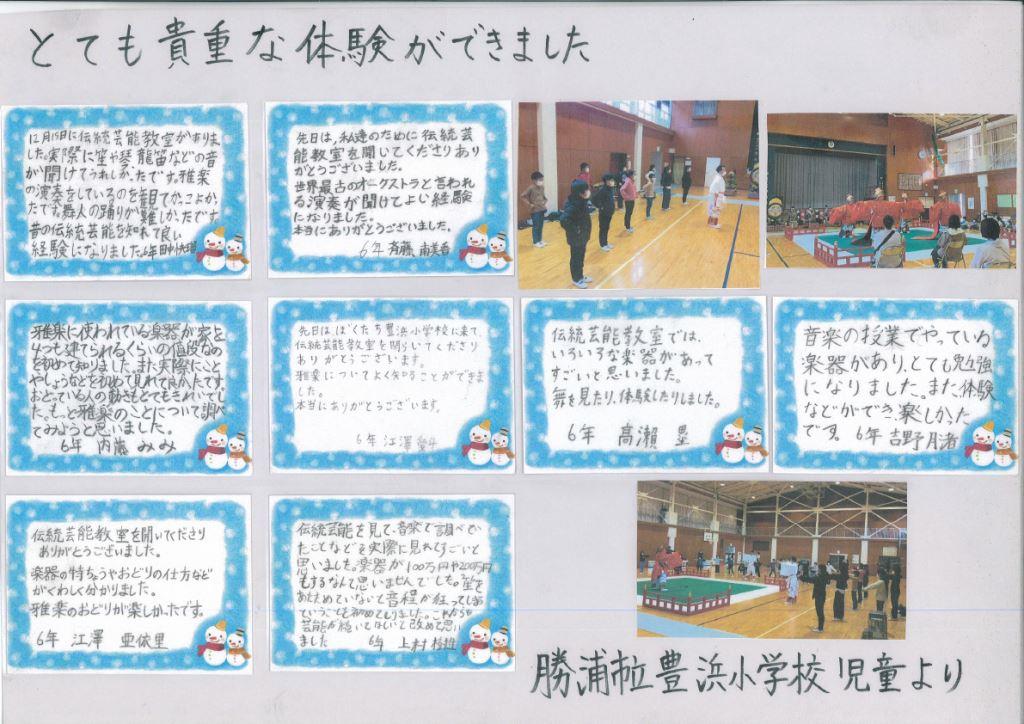 とても貴重な体験ができました
12月15日に伝統芸能教室がありま
した。実際に笛や琴、龍笛などの音
が聞けてうれしかったです。雅楽
の演奏をしているのを
たです。舞人の踊りが難しかったです
昔の伝統芸能を知れて良い
経験になりました。6年
先日は、私達のために伝統芸
能教室を開いてくださりあり
がとうございました。
世界最古のオーケストラと言われ
る演奏が聞けてよい経験
になりました。
本当にありがとうございました。
6年 斉藤 南美香
雅楽に使われている楽器が家を
4つも建てられるくらいの値段なの
を初めて知りました。また実際にこと
やしょうなどを初めて見れて良かったです。
おどっている人の動きもとてもきれいでし
た。もっと雅楽のことについて調べ
てみようと思いました。
6年 内藤 みみ
先日は、ぼくたち豊浜小学校に来て、
伝統芸能教室を開いてくださり
ありがとうございます。
雅楽についてよく知ることができま
した。
本当にありがとうございます。
6年 江澤
伝統芸能教室では、
いろいろな楽器があって
すごいと思いました。
舞を見たり、体験したりしました。
6年 高瀬 塁
音楽の授業でやっている
楽器があり、とても勉強
になりました。また、体験
などができ、楽しかった
です。6年 吉野月渚
伝統芸能教室を開いてくださり
ありがとうございました。
楽器の特ちょうやおどりの仕方など
がくわしく分かりました。
雅楽のおどりが楽しかったです。
6年 江澤 亜依里
伝統芸能を見て、音楽で調べて
たことなどを実際に見れてすごいと
思いました。楽器が100万円や200万円
もするなんて思いませんでした。笙を
あたためていないて音程が狂ってしまう
ということも初めてしりました。これからも
芸能が続いてほしいて改めて思い
ました 6年 上村
勝浦市立豊浜小学校児童より